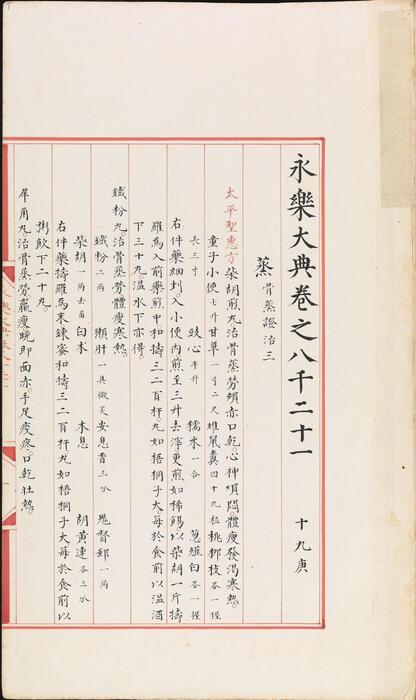 永樂大典卷之八千二十一 十九庚
蒸 骨蒸證治三
太平聖惠方柴胡煎丸治骨蒸勞頰赤口乾心神煩悶體瘦發渴寒熱
童子小便七升甘草一寸二尺雄鼠糞四十九粒桃柳枝各一握
長三寸 豉心半升 糯米一合 葱薤白各一握
右件藥細剉入小便內煎至三升去滓更煎如稀餳以柴胡一斤擣
羅爲入前藥煎中和擣三二百杵丸如梧桐子大每於食前以温酒
下三十九温水下亦得
鐵粉丸治骨蒸勞體瘦寒熱
鐵粉二兩 獺肝一具微炙安息香三分 鬼督郵一兩
柴胡一兩去苗白术 木香 胡黃連各三分
右件藥擣羅爲末鍊蜜和擣三二百杵丸如梧桐子大每於食前以
粥飲下二十九
犀角丸治骨蒸勞羸瘦晚即面赤手足疼口乾壯熱